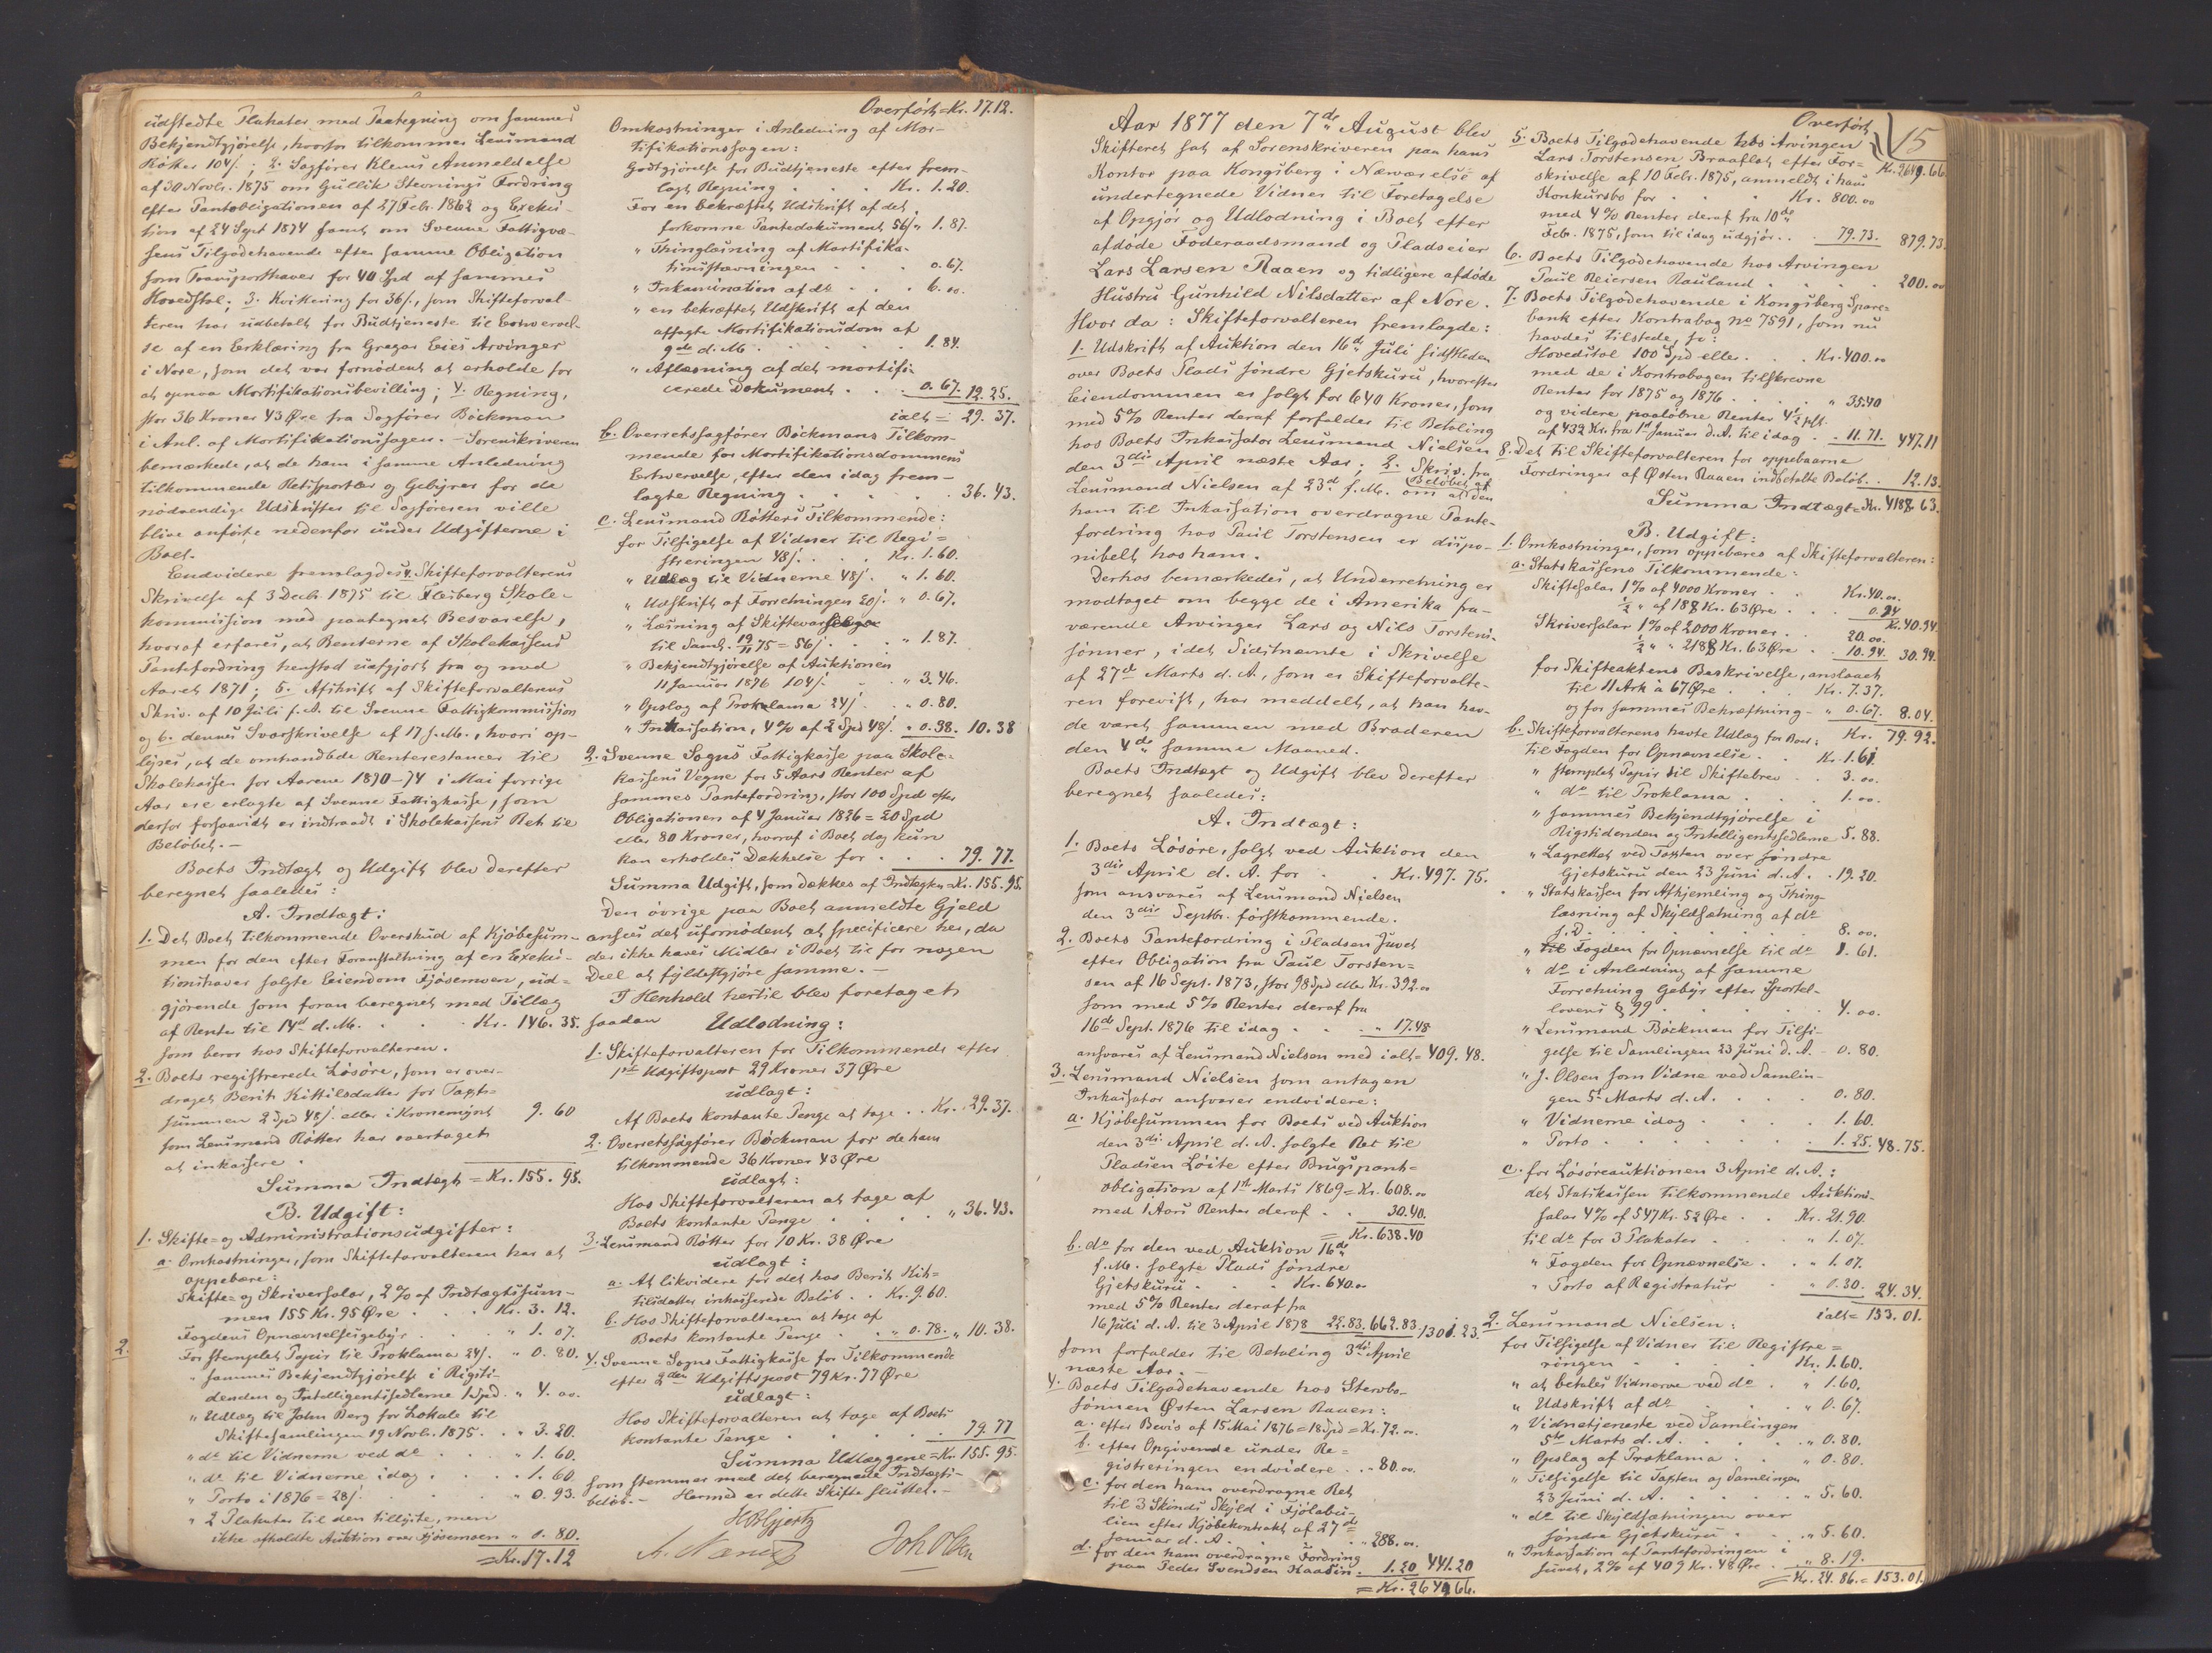 udstedte Plakater med Paategning om sammes
Bekjendtgjörelse, hvorfor tilkommer Lensmand
Rötter 104/.; 2. Sagförer Klems Anmeldelse
af 30 Novbr. 1875 om Gullik Stevnings Fordring
efter Pantobligationen af 27 Febr. 1862 og Exeku-
tion af 24 Sept 1874 samt om Svenne Fattigvæ-
sens Tilgodehavende efter samme Obligation
som Transporthaver for 40 Spd af sammes
Hovedstol; 3. Kvittering for 36/., som Skifteforval-
teren har udbetalt for Budtjeneste til Erhvervel-
se af en Erklæring fra Gregar Eies Arvinger
i Nore, som det var fornödent at erholde for
at opnaa Mortifikationsbevilling; 4. Regning,
stor 36 Kroner 43 Øre fra Sagförer Böckman
i Anl. af Mortifikationssagen. - Sorenskriveren
bemærkede, at de ham i samme Anledning
tilkommende Retssportler og Gebyrer for de
nödvendige Udskrifter til Sagföreren ville
blive anförte nedenfor under Udgifterne i
Boet.
Endvidere fremlagdes 4. Skifteforvalterens
Skrivelse af 3 Decbr 1875 til Flesberg Skole-
kommission med paategnet Besvarelse,
hvoraf erfares, at Renterne af Skolekassens
Pantefordring henstod uafgjort fra og med
Aaret 1871; 5. Afskrift af Skifteforvalterens
Skriv. af 10 Juli f. A. til Svenne Fattigkommission
og 6. dennes Svarskrivelse af 17 s. M., hvori op-
lyses, at de omhandlede Renterestancer til
Skolekassen for Aarene 1870-74 i Mai forrige
Aar ere erlagte af Svenne Fattigkasse, som
derfor forsaavidt er indtraadt i Skolekassens Ret til
Belöbet. -
Boets Indtægt og Udgift blev derefter
beregnet saaledes:
A. Indtægt:
1. Det Boet tilkommende Overskud af Kjöbesum-
men for den efter Foranstaltning af en Exeku-
tionshaver solgte Eiendom Fjösemoen, ud-
gjörende som foran beregnet med Tillæg
af Renter til 14d d. M. . . . Kr. 146. 35.
som beror hos Skifteforvalteren.
2. Boets registrerede Lösöre, som er over-
draget Berit Kittilsdatter for Taxt-
summen 2 Spd 48/. eller i Kronemynt 9. 60
som Lensmand Rötter har overtaget
at inkassere.
Summa Indtægt = Kr. 155. 95.
B. Udgift:
1. Skifte- og Administrationsudgifter:
a. Omkostninger, som Skifteforvalteren har at
oppebære:
Skifte- og Skriversalær, 2 % af Indtægtssum-
men 155 Kr. 95 Øre . . . Kr. 3. 12.
Fogdens Opnævnelsesgebyr . . . " 1. 07.
2. For stemplet Papir til Proklama 24/. " 0. 80.
" sammes Bekjendtgjörelse i Rigsti-
denden og Intelligentssedlerne 1 Spd. " 4. 00
" Udlæg til John Berg for Lokale til
Skiftesamlingen 19 Novbr. 1875. . . " 3. 20.
" do til Vidnerne ved do . . . " 1. 60.
" do til Vidnerne idag . . . " 1. 60
" Porto i 1876 = 28/. . . . " 0. 93.
" 2 Plakater til den tillyste, men
ikke afholdte Auktion over Fjösemoen " 0. 80.
= Kr. 17. 12
Overfört = Kr. 17. 12.
Omkostninger i Anledning af Mor-
tifikationssagen:
Godtgjörelse for Budtjeneste efter frem-
lagt Regning . . . Kr. 1. 20.
For en bekræftet Udskrift af det
forkomne Pantedokument 56/. " 1. 87.
" Thinglæsning af Mortifika-
tionsstævningen . . . 0. 67.
" Inkamination af do . . . 6. 00.
" en bekræftet Udskrift af den
afsagte Mortifikationsdom af
9de d. M. . . . 1. 84.
" Aflæsning af det mortifi-
cerede Dokument . . . 0. 67. 12. 25.
ialt = 29. 37.
b. Overretssagförer Böckmans Tilkom-
mende for Mortifikationsdommens
Erhvervelse, efter den idag frem-
lagte Regning . . . 36. 43.
c. Lensmand Rötters Tilkommende:
for Tilsigelse af Vidner til Regi-
streringen 48/. . . Kr. 1. 60.
" Udlæg til Vidnerne 48/. " 1. 60.
" Udskrift af Forretningen 20/. " 0. 67.
" Læsning af Skiftevarsel
til Saml. 19/11 75 = 56/. . . " 1. 87.
" Bekjendtgjörelse af Auktionen
11 Januar 1876 104/. . . " 3. 46.
" Opslag af Proklama 24/. . . " 0. 80.
" Inkassation, 4 % af 2 Spd 48/. " 0. 38. 10. 38
2. Svenne Sogns Fattigkasse paa Skole-
kassens Vegne for 5 Aars Renter af
sammes Pantefordring, stor 100 Spd efter
Obligationen af 4 Januar 1826 = 20 Spd
eller 80 Kroner, hvoraf i Boet dog kun
kan erholdes Dækkelse for . . . 79. 77.
Summa Udgift, som dækkes af Indtægten = Kr. 155. 95.
Den övrige paa Boet anmeldte Gjeld
ansees det ufornödent at specificere her, da
der ikke haves Midler i Boet til for nogen
Deel at fyldestgjöre samme. -
I Henhold hertil blev foretaget
saadan Udlodning:
1. Skifteforvalteren for Tilkommende efter
1ste Udgiftspost 29 Kroner 37 Øre
udlagt:
Af Boets kontante Penge at tage . . Kr. 29. 37.
2. Overretssagförer Böckman for de ham
tilkommende 36 Kroner 43 Øre
udlagt:
Hos Skifteforvalteren at tage af
Boets kontante Penge . . . " 36. 43.
3. Lensmand Rötter for 10 Kr. 38 Øre
udlagt:
a. At likvidere for det hos Berit Kit-
tilsdatter inkasserede Belöb . . Kr. 9. 60.
b. Hos Skifteforvalteren at tage af
Boets kontante Penge . . " 0. 78. " 10. 38.
4. Svenne Sogns Fattigkasse for Tilkommende
efter 2den Udgiftspost 79 Kr. 77 Øre
udlagt:
Hos Skifteforvalteren at tage af Boets
kontante Penge . . . 79. 77
Summa Udlæggene = Kr. 155. 95.
som stemmer med det beregnede Indtægts-
belöb. - Hermed er dette Skifte sluttet. -
Joh Olsen
15
Aar 1877 den 7de August blev
Skifteret sat af Sorenskriveren paa hans
Kontor paa Kongsberg i Nærværelse af
undertegnede Vidner til Foretagelse
af Opgjör og Udlodning i Boet efter
afdöde Föderaadsmand og Pladseier
Lars Larsen Raaen og tidligere afdöde
Hustru Gunhild Nilsdatter af Nore.
Hvor da: Skifteforvalteren fremlagde:
1. Udskrift af Auktion den 16de Juli sidstleden
over Boets Plads söndre Gjetskuru, hvorefter
Eiendommen er solgt for 640 Kroner, som
med 5 % Renter deraf forfalder til Betaling
hos Boets Inkassator Lensmand Nielsen
den 3die April næste Aar; 2. Skriv. fra
Lensmand Nielsen af 23d f. M. om at Belöbet af den
ham til Inkassation overdragne Pante-
fordring hos Paul Torstensen er dispo-
nibelt hos ham.
Derhos bemærkedes, at Underretning er
modtaget om begge de i Amerika fra-
værende Arvinger Lars og Nils Torstens-
sönner, idet Sidstnævnte i Skrivelse
af 27de Marts d. A., som er Skifteforvalte-
ren forevist, har meddelt, at han hav-
de været sammen med Broderen
den 4de samme Maaned.
Boets Indtægt og Udgift blev derefter
beregnet saaledes:
A. Indtægt:
1. Boets Lösöre, solgt ved Auktion den
3die April d. A. for . . Kr. 497. 75.
som ansvares af Lensmand Nielsen
den 3die Septbr. förstkommende.
2. Boets Pantefordring i Pladsen Juvet
efter Obligation fra Paul Torsten-
sen af 16 Sept. 1873, stor 98 Spd eller Kr. 392.00
som med 5 % Renter deraf fra
16de Sept. 1876 til idag . . . " 17. 48
ansvares af Lensmand Nielsen med ialt = 409. 48.
3. Lensmand Nielsen som antagen
Inkassator ansvarer endvidere:
a. Kjöbesummen for Boets ved Auktion
den 3die April d. A. solgte Ret til
Pladsen Löite efter Brugspant-
obligation af 1ste Marts 1869 = Kr. 608.00
med 1 Aars Renter deraf . . 30. 40.
= Kr. 638. 40
b. do for den ved Auktion 16de
f. M. solgte Plads söndre
Gjetskuru . . . Kr. 640.00
med 5 % Renter deraf fra
16 Juli d. A. til 3 April 1878 22. 83. 662. 83 1301. 23.
som forfalder til Betaling 3die April
næste Aar. -
4. Boets Tilgodehavende hos Stervbo-
sönnen Østen Larsen Raaen:
a. efter Bevis af 15 Mai 1876 = 18 Spd = Kr. 72. 00.
b. efter Opgivende under Re-
gistreringen endvidere . . " 80. 00.
c. for den ham overdragne Ret
til 3 Skinds Skyld i Fjölebu-
lien efter Kjöbekontrakt af 27de
Januar d. A. . . . " 288. 00.
d. for den ham overdragne Fordring
paa Peder Svendsen Kaasin. 1. 20 441. 20
= Kr. 2649 66.
Overfört
Kr. 2649. 66
5. Boets Tilgodehavende hos Arvingen
Lars Torstensen Braaflat efter For-
skrivelse af 10 Febr. 1875, anmeldt i hans
Konkursbo for . . . Kr. 800. 00
med 4 % Renter deraf fra 10de
Febr. 1875, som til idag udgjör . . 79. 73. 879. 73.
6. Boets Tilgodehavende hos Arvingen
Paul Reiersen Rauland . . . 200. 00
7. Boets Tilgodehavende i Kongsberg Spare-
bank efter Kontrabog no 7591, som nu
havdes tilstede, so:
Hovedstol 100 Spd eller . . . Kr. 400. 00
med de i Kontrabogen tilskrevne
Renter for 1875 og 1876 . . . " 35. 40
og videre paalöbne Renter 4½ pCt.
af 432 Kr. fra 1st Januar d. A. til idag . . 11. 71. 447. 11
8. Det til Skifteforvalteren for oppebaarne
Fordringer af Østen Raaen indbetalte Belöb . . 12. 13.
Summa Indtægt = Kr. 4188 63.
B. Udgift:
1. Omkostninger, som oppebæres af Skifteforvalteren:
a. Statskassens Tilkommende:
Skiftesalær 1 % af 4000 Kroner . . Kr. 40. 00.
½ " af 188 Kr. 63 Øre . . . 0. 94
Kr. 40. 94.
Skriversalær 1 % af 2000 Kroner . . 20. 00.
½ " " 2188 Kr. 63 Øre . . 10. 94. 30. 94.
for Skifteaktens Beskrivelse, anslaaet
til 11 Ark à 67 Øre . . Kr. 7. 37.
og for sammes Bekræftning - " 0. 67. 8. 04.
Kr. 79. 92.
b. Skifteforvalterens havte Udlæg for Boet:
til Fogden for Opnævnelse . . Kr. 1. 61
" stemplet Papir til Skiftebrev . . 3. 00.
" do til Proklama . . . 1. 00.
" sammes Bekjendtgjörelse i
Rigstidenden og Intelligentssedlerne 5. 88.
" Lagrettet ved Taxten over söndre
Gjetskuru den 23 Juni d. A. . 19. 20.
" Statskassen for Afhjemling og Thing-
læsning af Skyldsætning af do
s. D. . . . 8. 00.
" Fogden for Opnævnelse til do 1. 61.
" do i Anledning af samme
Forretning Gebyr efter Sportel-
lovens § 99 . . . 4. 00.
" Lensmand Böckman for Tilsi-
gelse til Samlingen 23 Juni d. A. - 0. 80.
" J. Olsen som Vidne ved Samlin-
gen 5te Marts d. A. . . . 0. 80.
" Vidnerne idag . . . 1. 60.
" Porto . . . 1. 25. 48. 75.
c. for Lösöreauktionen 3 April d. A.:
det Statskassen tilkommende Auktions-
salær 4 % af 547 Kr. 52 Øre . . Kr. 21. 90.
til do for 3 Plakater . . . " 1. 07.
" Fogden for Opnævnelse . . " 1. 07.
" Porto af Registratur . . " 0. 30. 24. 34.
ialt = 153. 01.
2. Lensmand Nielsen:
for Tilsigelse af Vidner til Registre-
ringen . . . Kr. 1. 60.
" at betale Vidnerne ved do . " 1. 60.
" Udskrift af do . . . " 0. 67.
" Vidnetjeneste ved Samlingen
5te Marts d. A. . . . " 0. 80.
" Opslag af Proklama . . " 0. 80.
" Tilsigelse til Taxten og Samlingen
23 Juni d. A. . . . " 5. 60.
" do til Skyldsætningen over
söndre Gjetskuru . . . " 5. 60.
" Inkassation af Pantefordringen i
Juvet, 2 % af 409 Kr. 48 Øre . " 8. 19.
= Kr. 24. 86. = 153. 01.